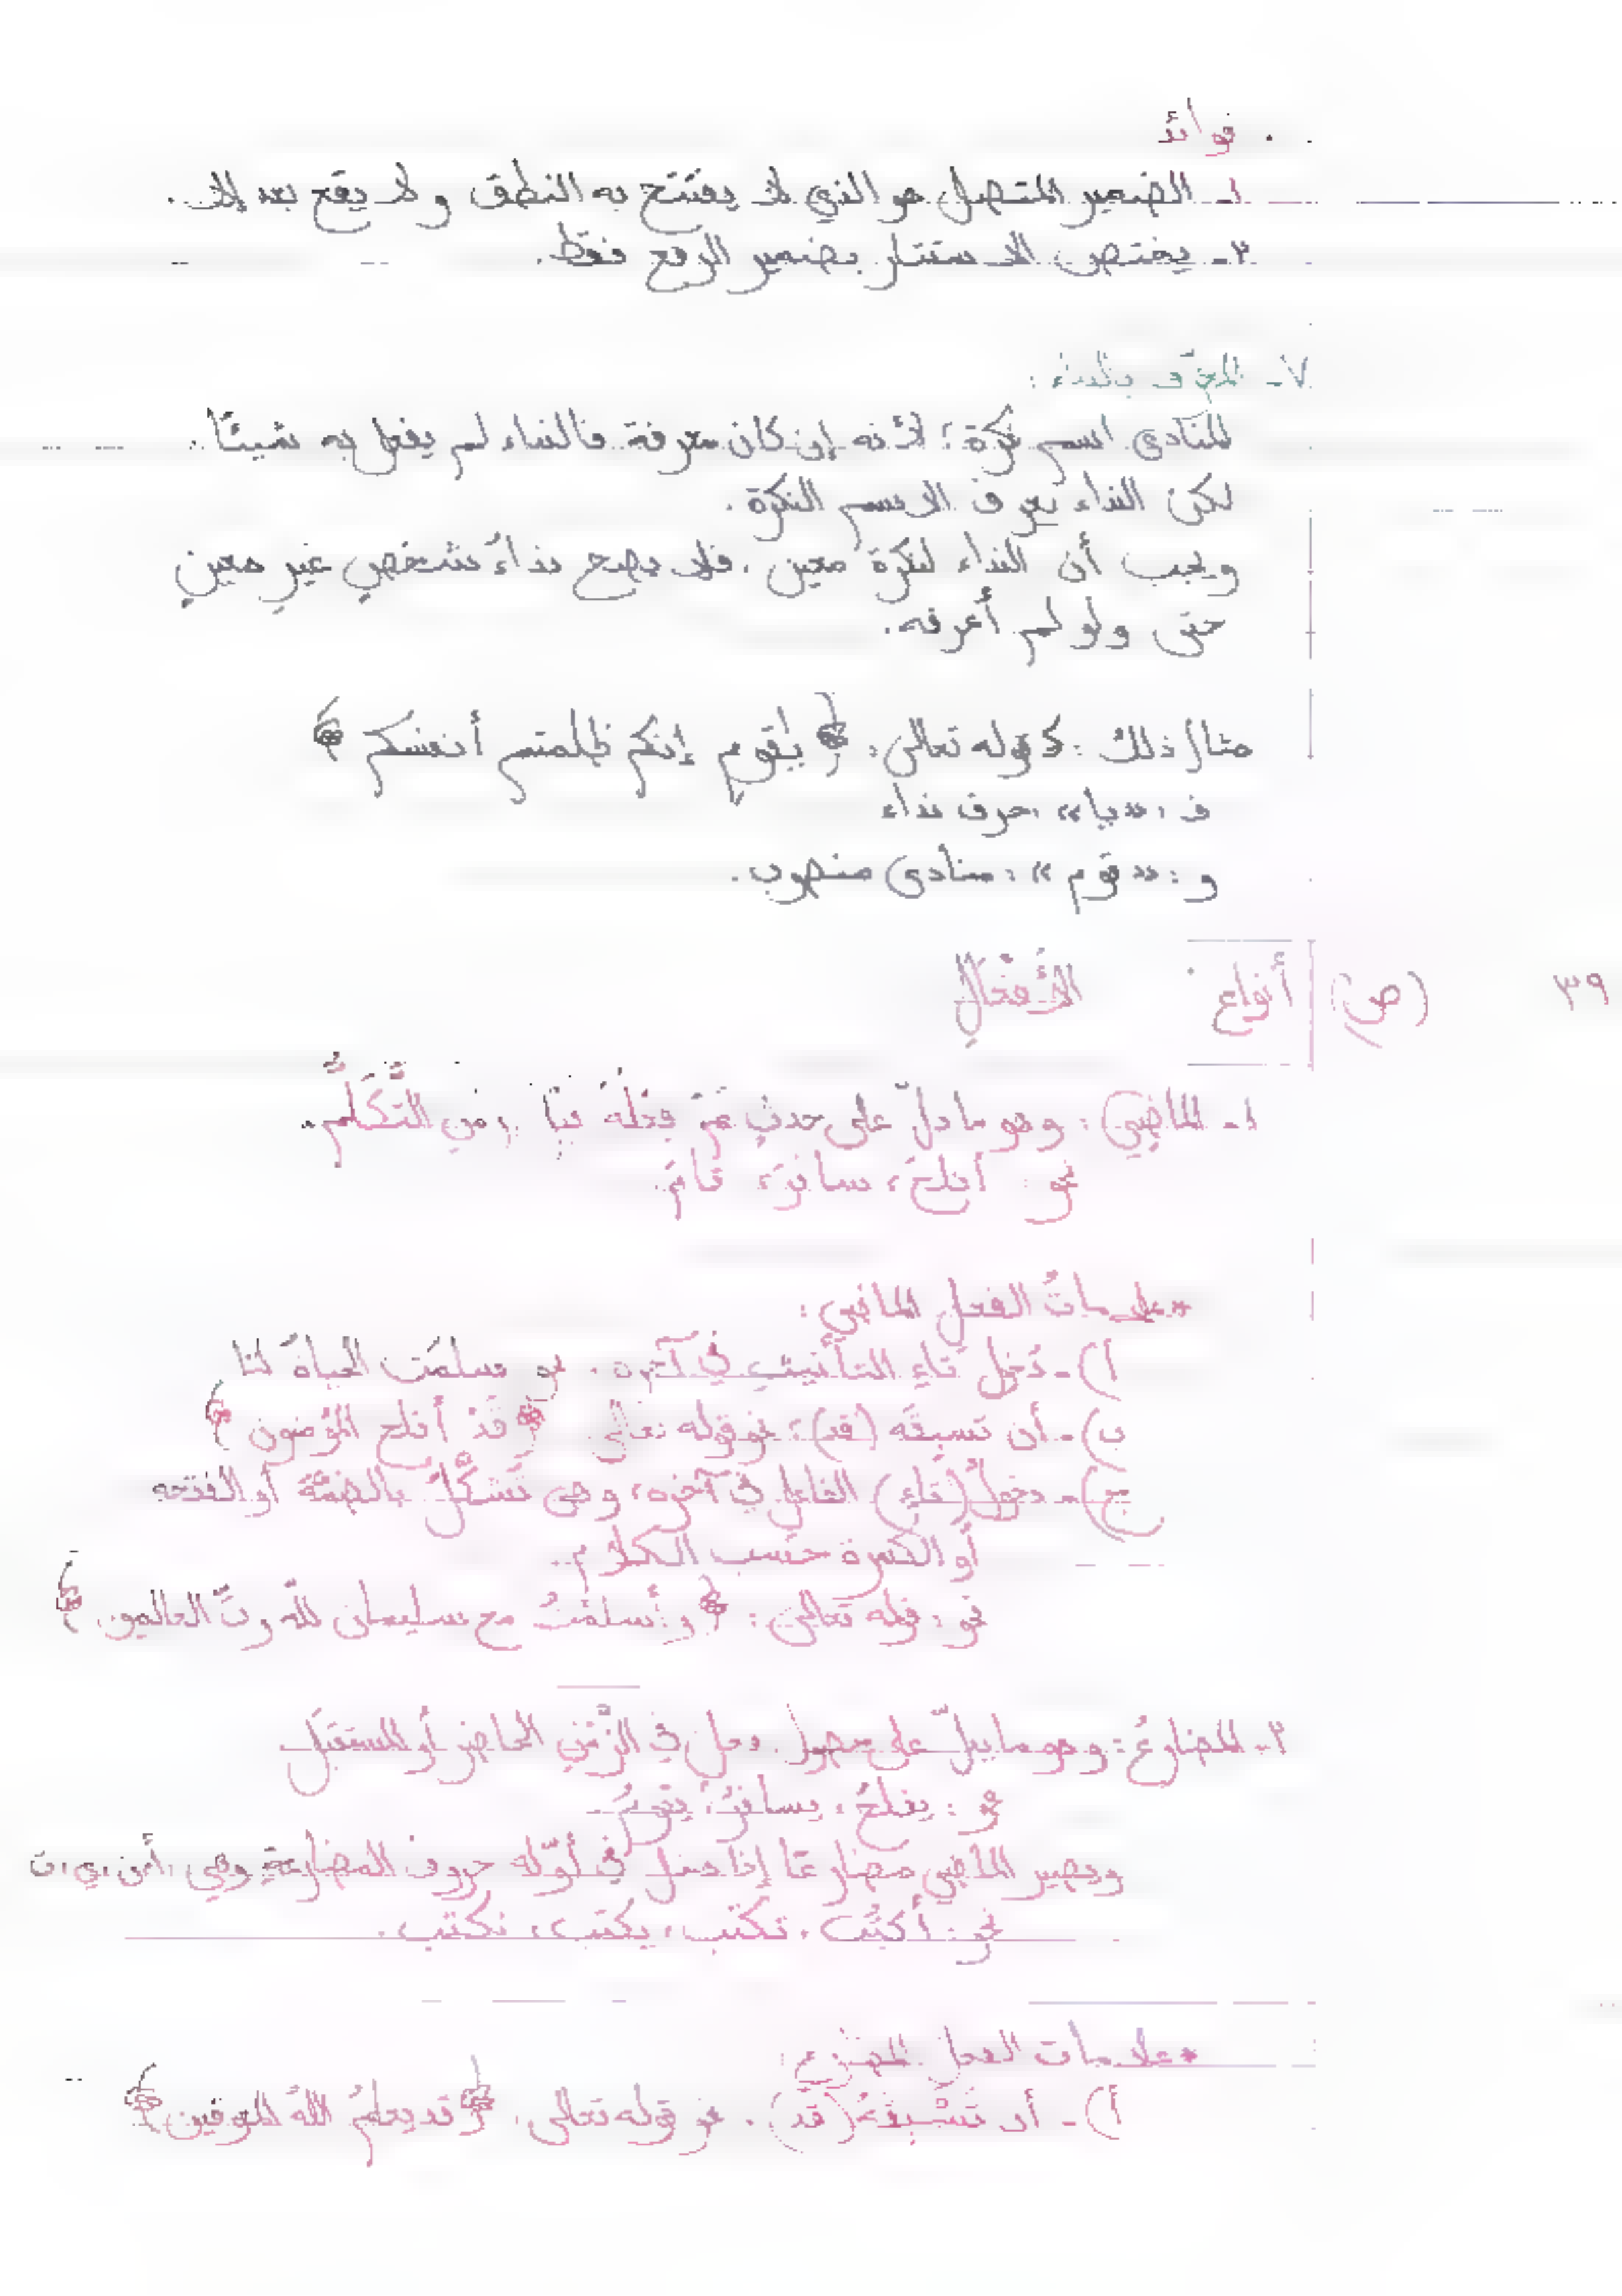 فوائد
١- الضمير المتصل هو الذي لا يفتتح به النطق ولا يقع بعد إلا.
٢- يختص الاستتار بضمير الرفع فقط.
٧- المعرّف بالنداء:
المنادى اسم نكرة؛ لأنه إن كان معرفة فالنداء لم يفعل به شيئًا.
لكن النداء يعرف الاسم النكرة.
ويجب أن النداء لنكرة معين، فلا يصح نداءُ شخصٍ غيرِ معينٍ
حتى ولو لم أعرفه.
مثال ذلك: كقوله تعالى: ﴿يٰقومِ إنكم ظلمتم أنفسكم﴾
فـ: «يا»: حرف نداء
و: «قَوْمِ»: منادى منصوب.
٣٩ (ص) أنواع الأَفْعَالِ
١- الماضِي: وهو ما دلّ على حدثٍ تمّ فعلُهُ قبلَ زمنِ التَّكَلُّمِ.
نحو أفلحَ، سافرَ، قامَ.
*علاماتُ الفعل الماضي:
أ)- دُخول تاءِ التأنيثِ في آخره. نحو سلمَت الحياةُ لنا
ب)- أن تسبقَه (قد)؛ نحو قوله تعالى ﴿قَدْ أفلح المؤمنون﴾
ج)- دخولُ (تاءِ) الفاعل في آخره، وهي تُشكّلُ بالضمّة أو الفتحه
أو الكسرة حسب الكلام.
نحو: قوله تعالى: ﴿وأسلمْتُ مع سليمان للّه ربّ العالمين﴾
٢- المضارعُ: وهو ما يدلّ على حصول فعل في الزَّمَنِ الحاضر أو المستقبَل
نحو: يفلحُ، يسافرُ، يقومُ.
ويصير الماضي مضارعًا إذا دخل في أوّله حروف المضارعةِ وهي أ، ن، ي، ت
نحو: أكتُب، تكتب، يكتب، نكتب.
*علامات الفعل المضارع:
أ)- أن تَسْبِقَهُ (قد). نحو قوله تعالى: ﴿قد يعلمُ اللّهُ المعوقين﴾